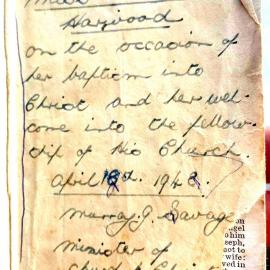 Haywood
on the occasion of
her baptism into
Christ and her wel-
come into the fellow-
ship of His Church.
April 18th. 1948.
Murray. J. Savage
Minister of
on
ngel
o him
seph,
not to
wife:
ved in